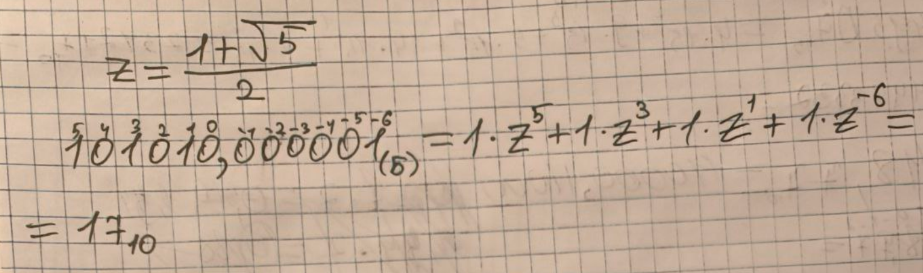 z = (1+√5)/2
1⁵0⁴1³0²1¹0⁰,0⁻¹0⁻²0⁻³0⁻⁴0⁻⁵1⁻⁶₍Б₎ = 1·z⁵+1·z³+1·z¹+1·z⁻⁶=
= 17₁₀